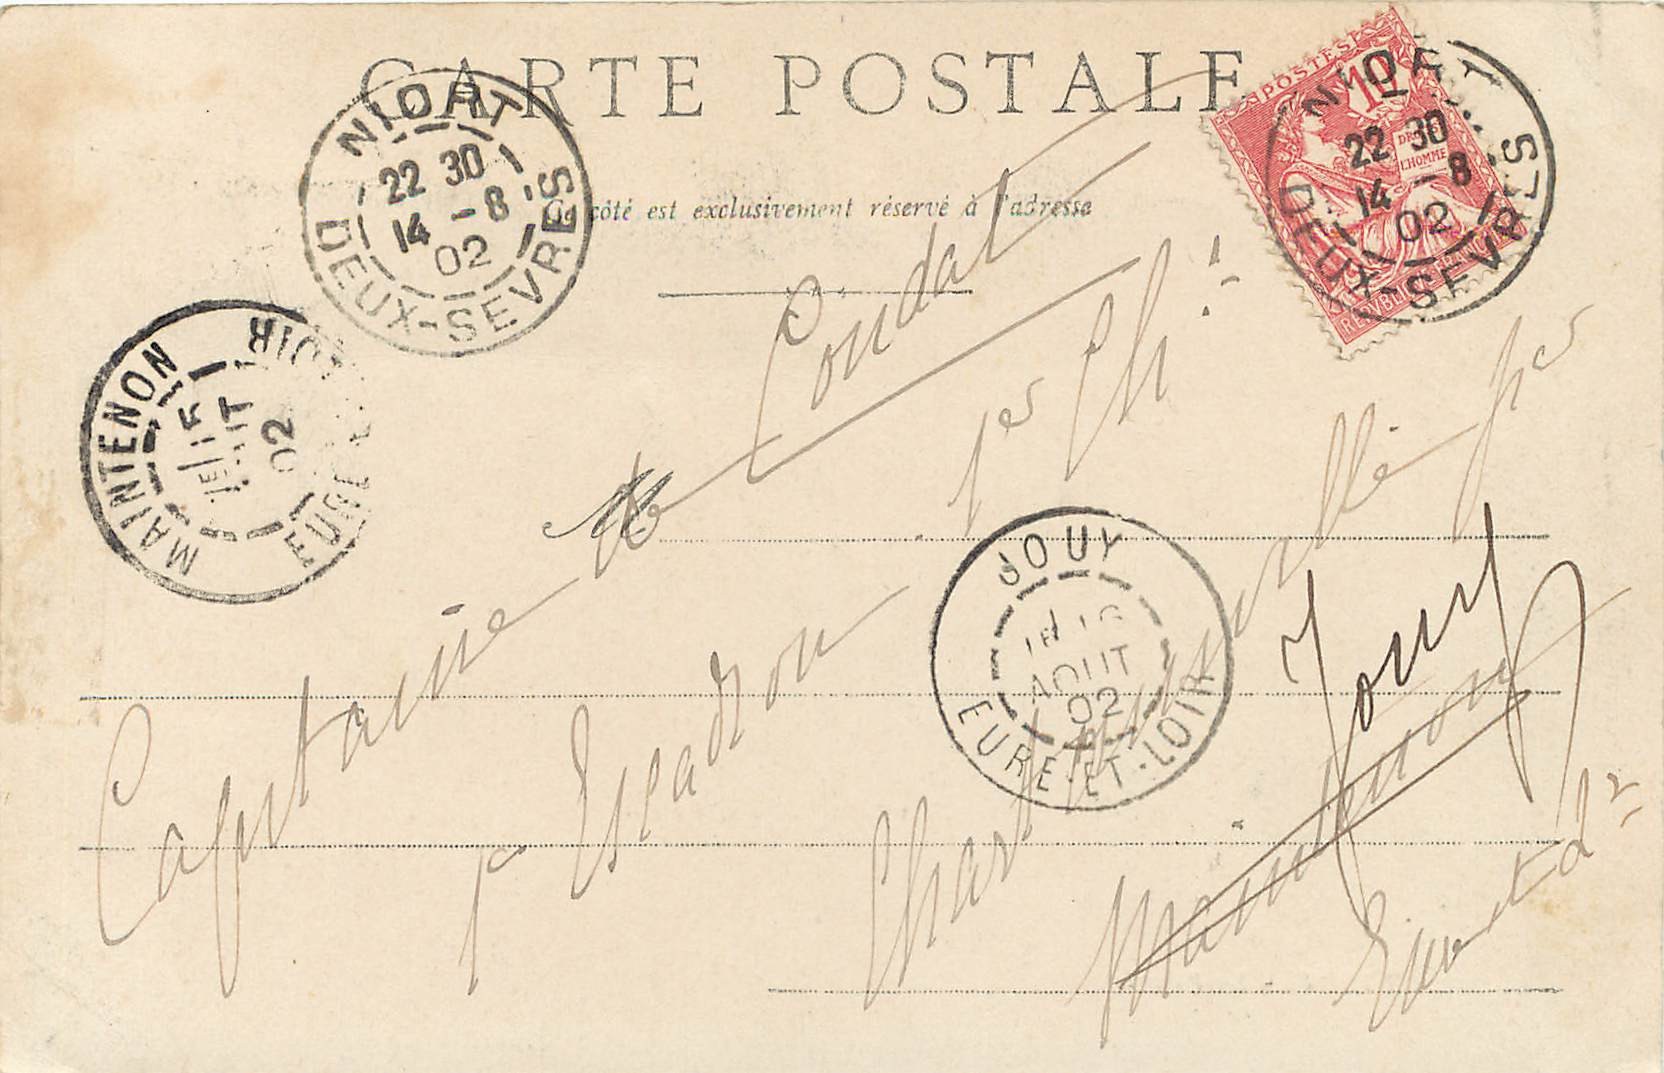 CARTE POSTALE
Ce côté est exclusivement réservé à l'adresse
POSTES
10
DROITS DE L'HOMME
REPVBLIQVE FRANÇAISE
NIORT
22 30
14 -8
02
DEUX-SEVRES
NIORT
22 30
14 -8
02
DEUX-SEVRES
MAINTENON
15
02
EURE-ET-LOIR
JOUY
AOUT
02
EURE-ET-LOIR
Capitaine de Condat
1er Escadron 1er Ch!
pr
Maintenon
Jouy